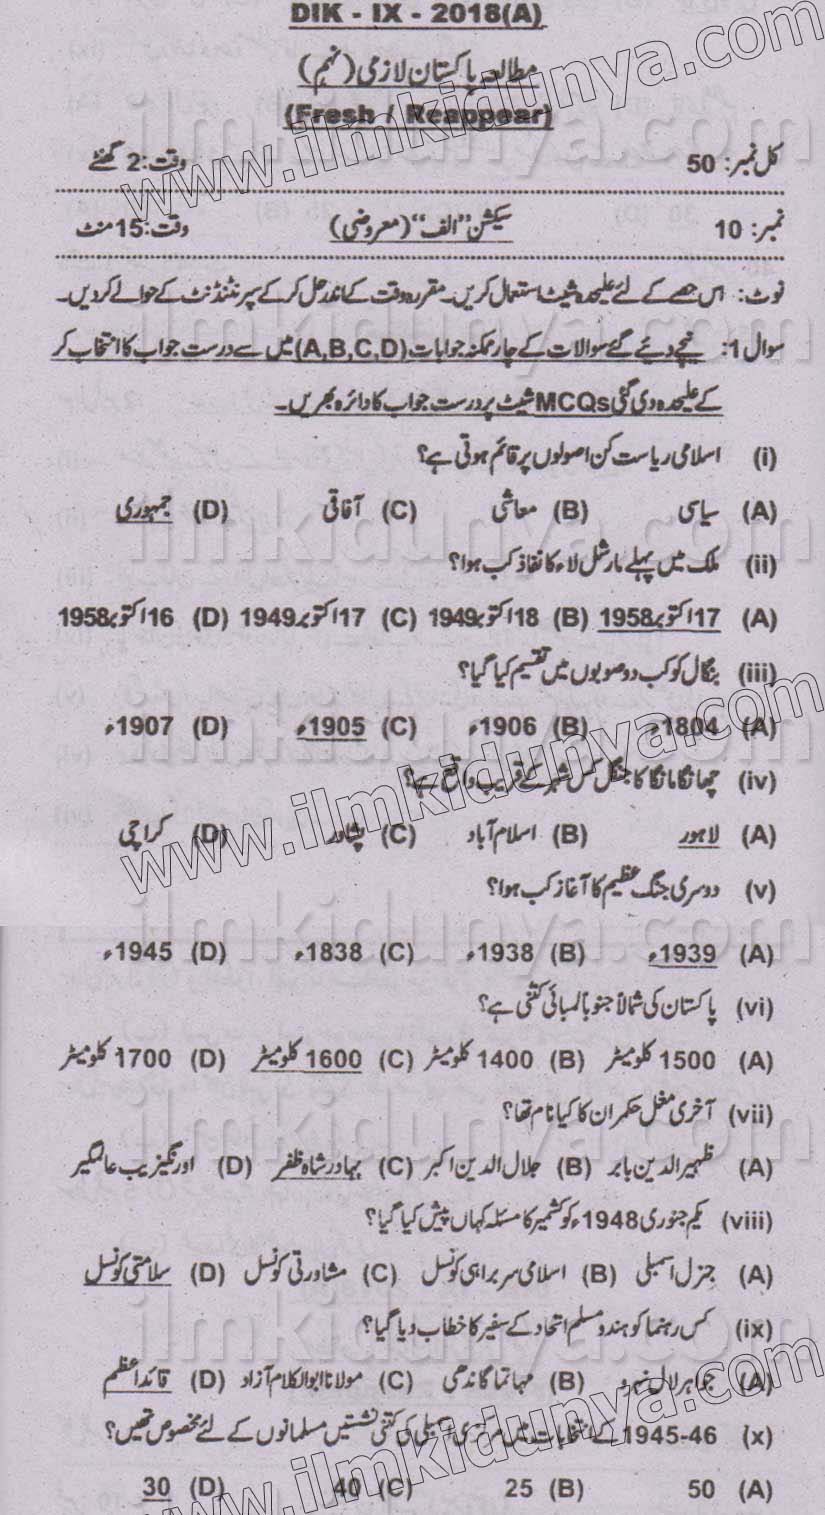 DIK - IX - 2018(A)
مطالعہ پاکستان لازمی (نہم)
(Fresh / Reappear)
کل نمبر: 50 وقت: 2 گھنٹے
نمبر: 10 سیکشن "الف" (معروضی) وقت: 15 منٹ
نوٹ: اس حصے کے لئے علیحدہ شیٹ استعمال کریں۔ مقررہ وقت کے اندر حل کر کے سپرنٹنڈنٹ کے حوالے کر دیں۔
سوال 1: نیچے دیئے گئے سوالات کے چار ممکنہ جوابات (A,B,C,D) میں سے درست جواب کا انتخاب کر
کے علیحدہ دی گئی MCQs شیٹ پر درست جواب کا دائرہ بھریں۔
(i) اسلامی ریاست کن اصولوں پر قائم ہوتی ہے؟
(A) سیاسی (B) معاشی (C) آفاقی (D) جمہوری
(ii) ملک میں پہلے مارشل لاء کا نفاذ کب ہوا؟
(A) 17 اکتوبر 1958 (B) 18 اکتوبر 1949 (C) 17 اکتوبر 1949 (D) 16 اکتوبر 1958
(iii) بنگال کو کب دو صوبوں میں تقسیم کیا گیا؟
(A) 1804ء (B) 1906ء (C) 1905ء (D) 1907ء
(iv) چھانگا مانگا کا جنگل کس شہر کے قریب واقع ہے؟
(A) لاہور (B) اسلام آباد (C) پشاور (D) کراچی
(v) دوسری جنگ عظیم کا آغاز کب ہوا؟
(A) 1939ء (B) 1938ء (C) 1838ء (D) 1945ء
(vi) پاکستان کی شمالاً جنوباً لمبائی کتنی ہے؟
(A) 1500 کلومیٹر (B) 1400 کلومیٹر (C) 1600 کلومیٹر (D) 1700 کلومیٹر
(vii) آخری مغل حکمران کا کیا نام تھا؟
(A) ظہیر الدین بابر (B) جلال الدین اکبر (C) بہادر شاہ ظفر (D) اورنگزیب عالمگیر
(viii) یکم جنوری 1948ء کو کشمیر کا مسئلہ کہاں پیش کیا گیا؟
(A) جنرل اسمبلی (B) اسلامی سربراہی کونسل (C) مشاورتی کونسل (D) سلامتی کونسل
(ix) کس رہنما کو ہندو مسلم اتحاد کے سفیر کا خطاب دیا گیا؟
(A) جواہر لال نہرو (B) مہاتما گاندھی (C) مولانا ابوالکلام آزاد (D) قائد اعظم
(x) 1945-46 کے انتخابات میں مرکزی اسمبلی کی کتنی نشستیں مسلمانوں کے لئے مخصوص تھیں؟
(A) 50 (B) 25 (C) 40 (D) 30
www.ilmkidunya.com
ilmkidunya.com
ilmkidunya.com
ilmkidunya.com
www.ilmkidunya.com
ilmkidunya.com
ilmkidunya.com
ilmkidunya.com
www.ilmkidunya.com